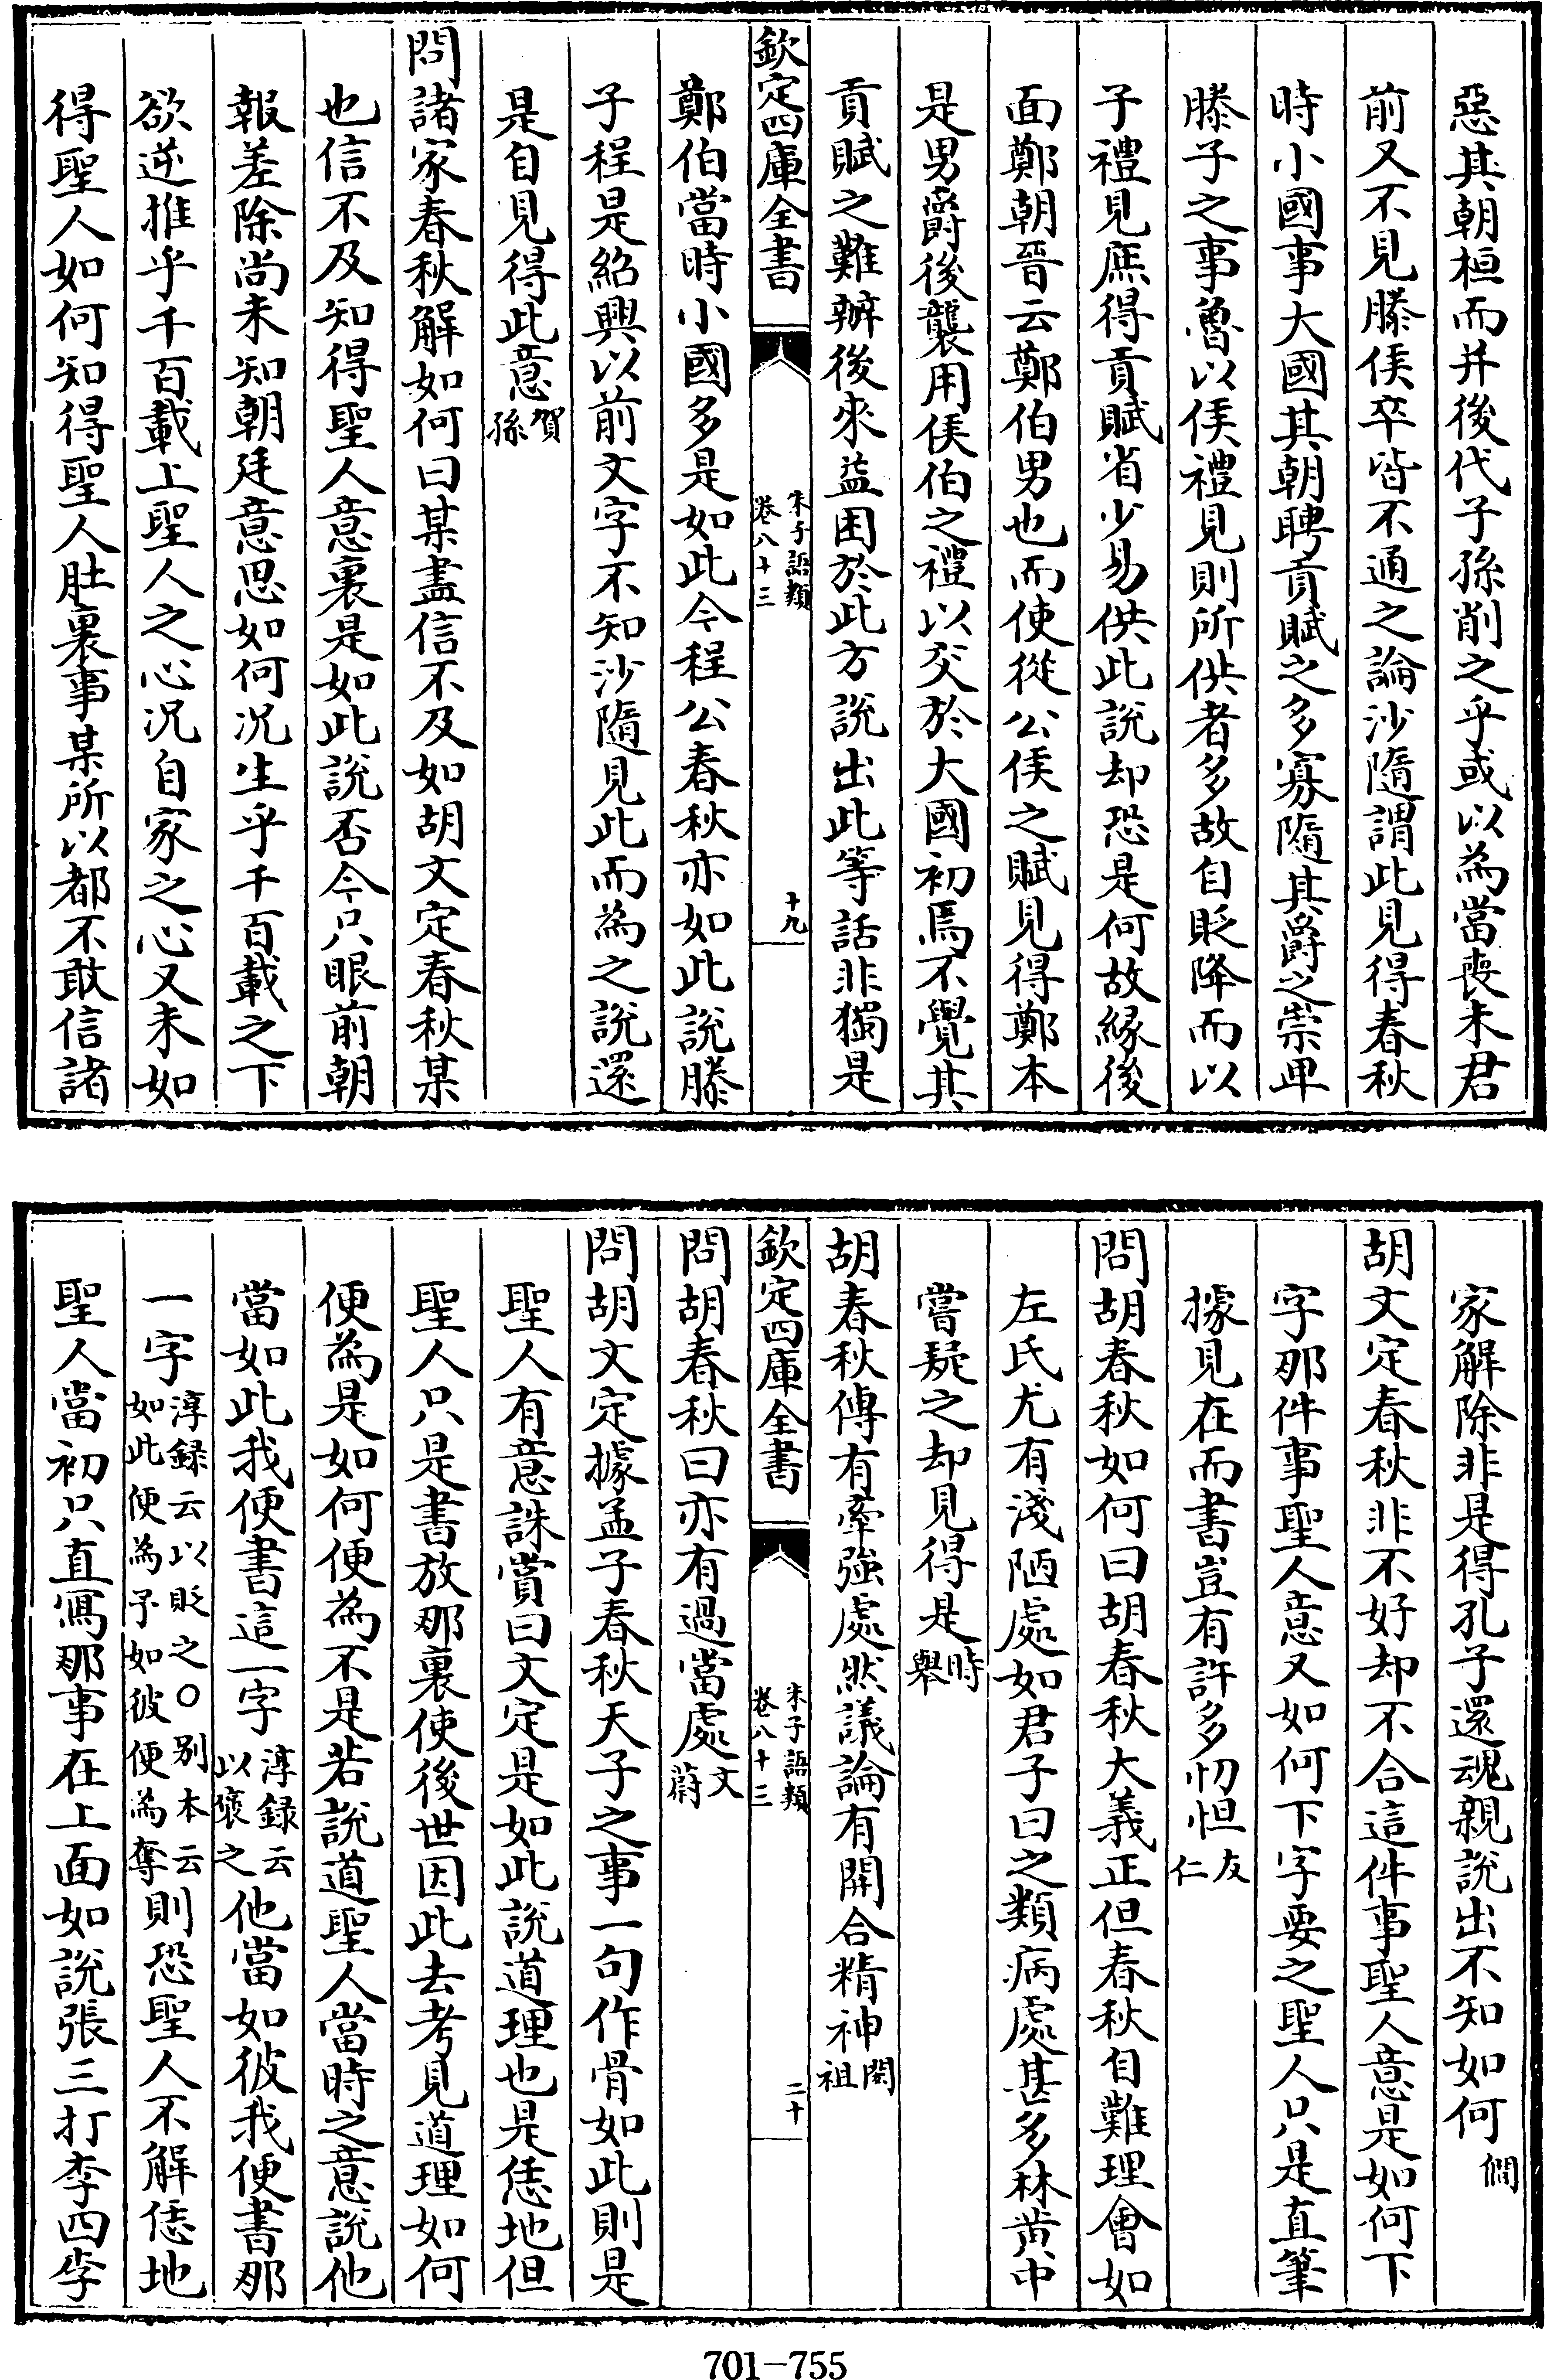 惡其朝桓而并後代子孫削之乎或以為當喪未君
前又不見滕侯卒皆不通之論沙隨謂此見得春秋
時小國事大國其朝聘貢賦之多寡隨其爵之崇卑
滕子之事魯以侯禮見則所供者多故自貶降而以
子禮見庶得貢賦省少易供此說却恐是何故緣後
面鄭朝晉云鄭伯男也而使從公侯之賦見得鄭本
是男爵後襲用侯伯之禮以交於大國初焉不覺其
貢賦之難辦後來益困於此方說出此等話非獨是
欽定四庫全書
朱子語類
卷八十三
十九
鄭伯當時小國多是如此今程公春秋亦如此說滕
子程是紹興以前文字不知沙隨見此而為之說還
是自見得此意賀
孫
問諸家春秋解如何曰某盡信不及如胡文定春秋某
也信不及知得聖人意裏是如此說否今只眼前朝
報差除尚未知朝廷意思如何况生乎千百載之下
欲逆推乎千百載上聖人之心况自家之心又未如
得聖人如何知得聖人肚裏事某所以都不敢信諸
家解除非是得孔子還魂親說出不知如何僴
胡文定春秋非不好却不合這件事聖人意是如何下
字那件事聖人意又如何下字要之聖人只是直筆
據見在而書豈有許多忉怛友
仁
問胡春秋如何曰胡春秋大義正但春秋自難理會如
左氏尤有淺陋處如君子曰之類病處甚多林黄中
嘗疑之却見得是時
舉
胡春秋傳有牽強處然議論有開合精神閎
祖
欽定四庫全書
朱子語類
卷八十三
二十
問胡春秋曰亦有過當處文
蔚
問胡文定據孟子春秋天子之事一句作骨如此則是
聖人有意誅賞曰文定是如此說道理也是恁地但
聖人只是書放那裏使後世因此去考見道理如何
便為是如何便為不是若說道聖人當時之意說他
當如此我便書這一字淳録云
以褒之他當如彼我便書那
一字淳録云以貶之○别本云
如此便為予如彼便為奪則恐聖人不解恁地
聖人當初只直寫那事在上面如說張三打李四李
701-755